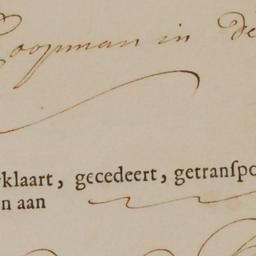 Coopman in de
klaart, gecedeert, getranſpo
n aan